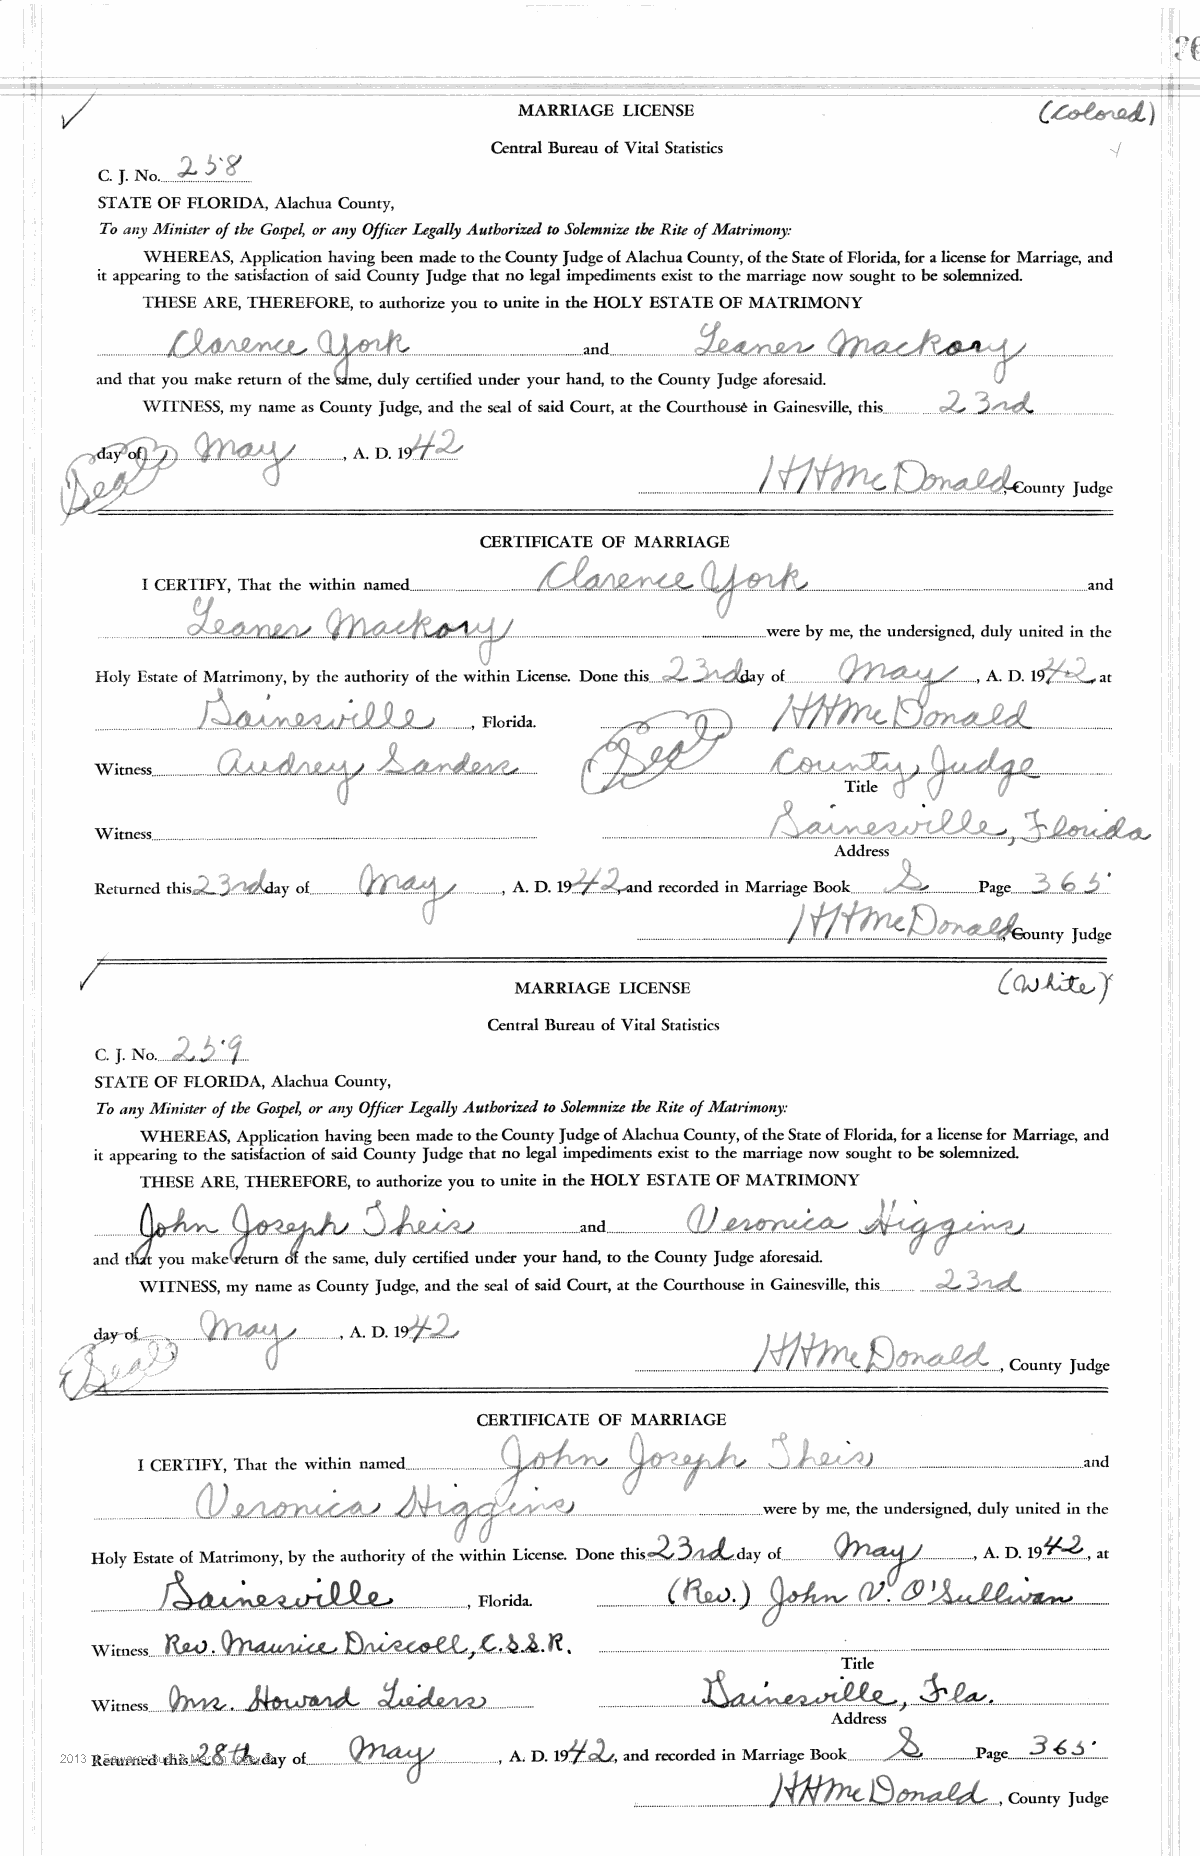 MARRIAGE LICENSE (Colored)
Central Bureau of Vital Statistics
C. J. No. 258
STATE OF FLORIDA, Alachua County,
To any Minister of the Gospel, or any Officer Legally Authorized to Solemnize the Rite of Matrimony:
WHEREAS, Application having been made to the County Judge of Alachua County, of the State of Florida, for a license for Marriage, and
it appearing to the satisfaction of said County Judge that no legal impediments exist to the marriage now sought to be solemnized.
THESE ARE, THEREFORE, to authorize you to unite in the HOLY ESTATE OF MATRIMONY
Clarence York and Leaner Mackory
and that you make return of the same, duly certified under your hand, to the County Judge aforesaid.
WITNESS, my name as County Judge, and the seal of said Court, at the Courthouse in Gainesville, this 23rd
day of May, A. D. 1942
(Seal) HHMcDonald, County Judge
CERTIFICATE OF MARRIAGE
I CERTIFY, That the within named Clarence York and
Leaner Mackory were by me, the undersigned, duly united in the
Holy Estate of Matrimony, by the authority of the within License. Done this 23rd day of May, A. D. 1942, at
Gainesville, Florida. HHMcDonald
Witness Audrey Sanders (Seal) County Judge
Title
Witness Gainesville, Florida
Address
Returned this 23rd day of May, A. D. 1942, and recorded in Marriage Book S Page 365
HHMcDonald, County Judge
MARRIAGE LICENSE (White)
Central Bureau of Vital Statistics
C. J. No. 259
STATE OF FLORIDA, Alachua County,
To any Minister of the Gospel, or any Officer Legally Authorized to Solemnize the Rite of Matrimony:
WHEREAS, Application having been made to the County Judge of Alachua County, of the State of Florida, for a license for Marriage, and
it appearing to the satisfaction of said County Judge that no legal impediments exist to the marriage now sought to be solemnized.
THESE ARE, THEREFORE, to authorize you to unite in the HOLY ESTATE OF MATRIMONY
John Joseph Theis and Veronica Higgins
and that you make return of the same, duly certified under your hand, to the County Judge aforesaid.
WITNESS, my name as County Judge, and the seal of said Court, at the Courthouse in Gainesville, this 23rd
day of May, A. D. 1942
(Seal) HHMcDonald, County Judge
CERTIFICATE OF MARRIAGE
I CERTIFY, That the within named John Joseph Theis and
Veronica Higgins were by me, the undersigned, duly united in the
Holy Estate of Matrimony, by the authority of the within License. Done this 23rd day of May, A. D. 1942, at
Gainesville, Florida. (Rev.) John V. O'Sullivan
Witness Rev. Maurice Driscoll, C.S.S.R.
Title
Witness Mrs. Howard Lieders Gainesville, Fla.
Address
Returned this 28th day of May, A. D. 1942, and recorded in Marriage Book S Page 365
HHMcDonald, County Judge